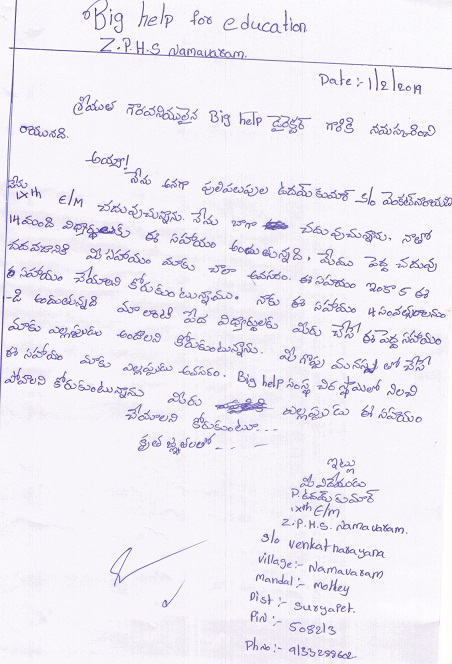 Big help for education
Z.P.H.S Namavaram.
Date:- 1/2/2019
శ్రీయుత గౌరవనియులైన Big help డైరెక్టర్ గారికి నమస్కరించి
రాయునది.
అయ్యా!
నేను అనగా పులిపలుపుల ఉదయ్ కుమార్ S/o వెంకటనారాయణ
నేను
IXth E/M చదువుచున్నాను. నేను బాగా చదువుచున్నాను. నాతో
14 మంది విద్యార్థులకు ఈ సహాయం అందుతున్నది, మేము పెద్ద చదువు
చదవడానికి మీ సహాయం మాకు చాలా అవసరం. ఈ సహాయం ఇంకా ఈ
సహాయం చేయాలని కోరుకుంటున్నాము. నాకు ఈ సహాయం 4 సంవత్సరాలనుం
-డి అందుతున్నది మా లాంటి పేద విద్యార్థులకు మీరు చేసే ఈ పెద్ద సహాయం
మాకు ఎల్లప్పుడు అందాలని కోరుకుంటున్నాను. మీ గొప్ప మనస్సు తో చేసే
ఈ సహాయం మాకు ఎల్లప్పుడు అవసరం. Big help సంస్థ చిరస్థాయిలో నిలిచి
పోవాలని కోరుకుంటున్నాను మీరు ఎల్లప్పుడు ఈ సహాయం
చేయాలని కోరుకుంటూ...
కృతజ్ఞతలతో...
ఇట్లు
మీ విదేయుడు
P. ఉదయ్ కుమార్
IXth E/M
Z.P.H.S. Namavaram.
S/o venkatnarayana
village:- Namavaram
mandal:- Mothey
Dist:- Suryapet.
Pin:- 508213
Ph no:- 9133288602.